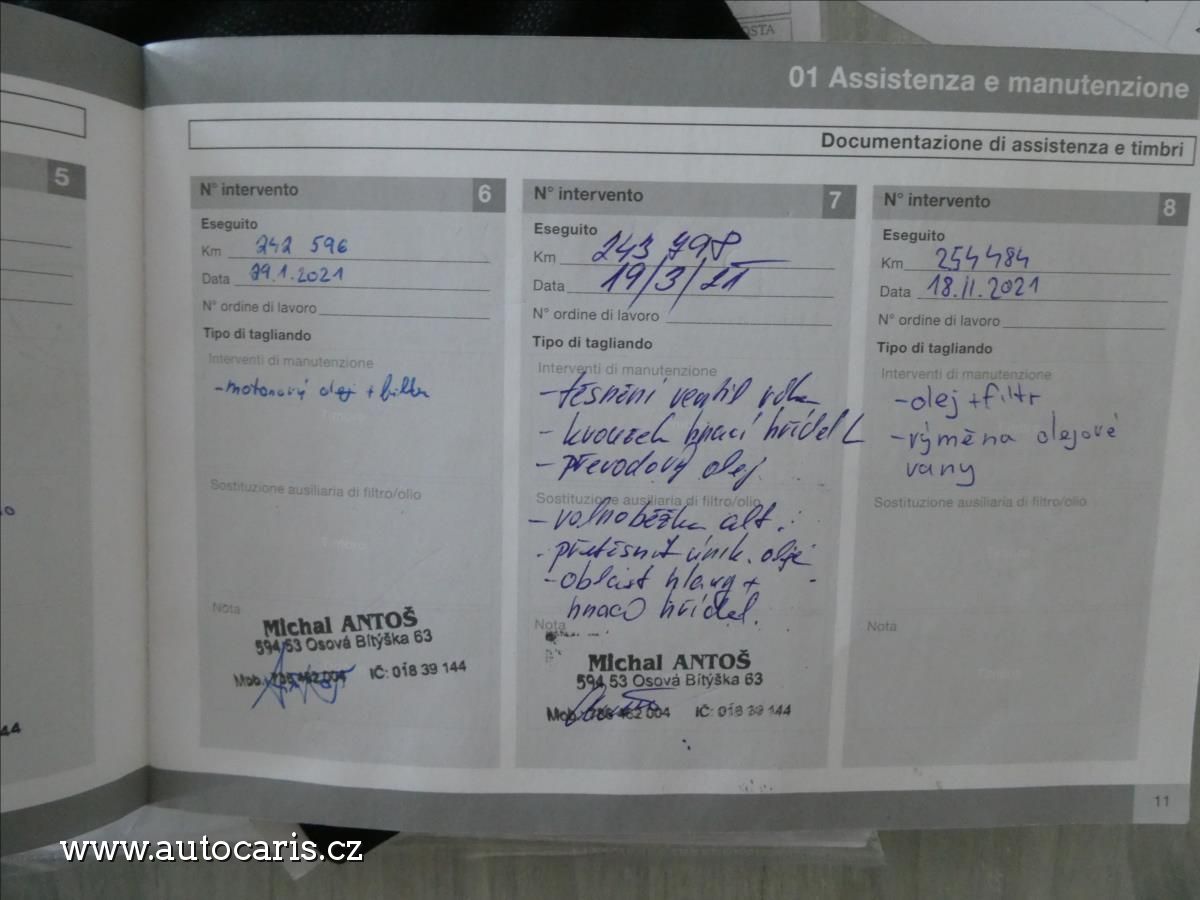 OSTA
01 Assistenza e manutenzione
Documentazione di assistenza e timbri
5
N° intervento 6
Eseguito
Km 242 596
Data 29.1.2021
N° ordine di lavoro
Tipo di tagliando
Interventi di manutenzione
- motorový olej + filtr
Timbro
Sostituzione ausiliaria di filtro/olio
Timbro
Nota
Michal ANTOŠ
594 53 Osová Bítýška 63
Mob.: 736 462 004 IČ: 018 39 144
N° intervento 7
Eseguito
Km 243 798
Data 19/3/21
N° ordine di lavoro
Tipo di tagliando
Interventi di manutenzione
- těsnění ventil víka
- kroužek hnací hřídel L
- převodový olej
Sostituzione ausiliaria di filtro/olio
- volnoběžka alt.
- přetěsnit únik. oleje
- oblast hlavy +
hnací hřídel.
Nota
Michal ANTOŠ
594 53 Osová Bítýška 63
Mob.: 736 462 004 IČ: 018 39 144
N° intervento 8
Eseguito
Km 254 484
Data 18.11.2021
N° ordine di lavoro
Tipo di tagliando
Interventi di manutenzione
- olej + filtr
- výměna olejové
vany
Sostituzione ausiliaria di filtro/olio
Timbro
Nota
Timbro
44
11
www.autocaris.cz